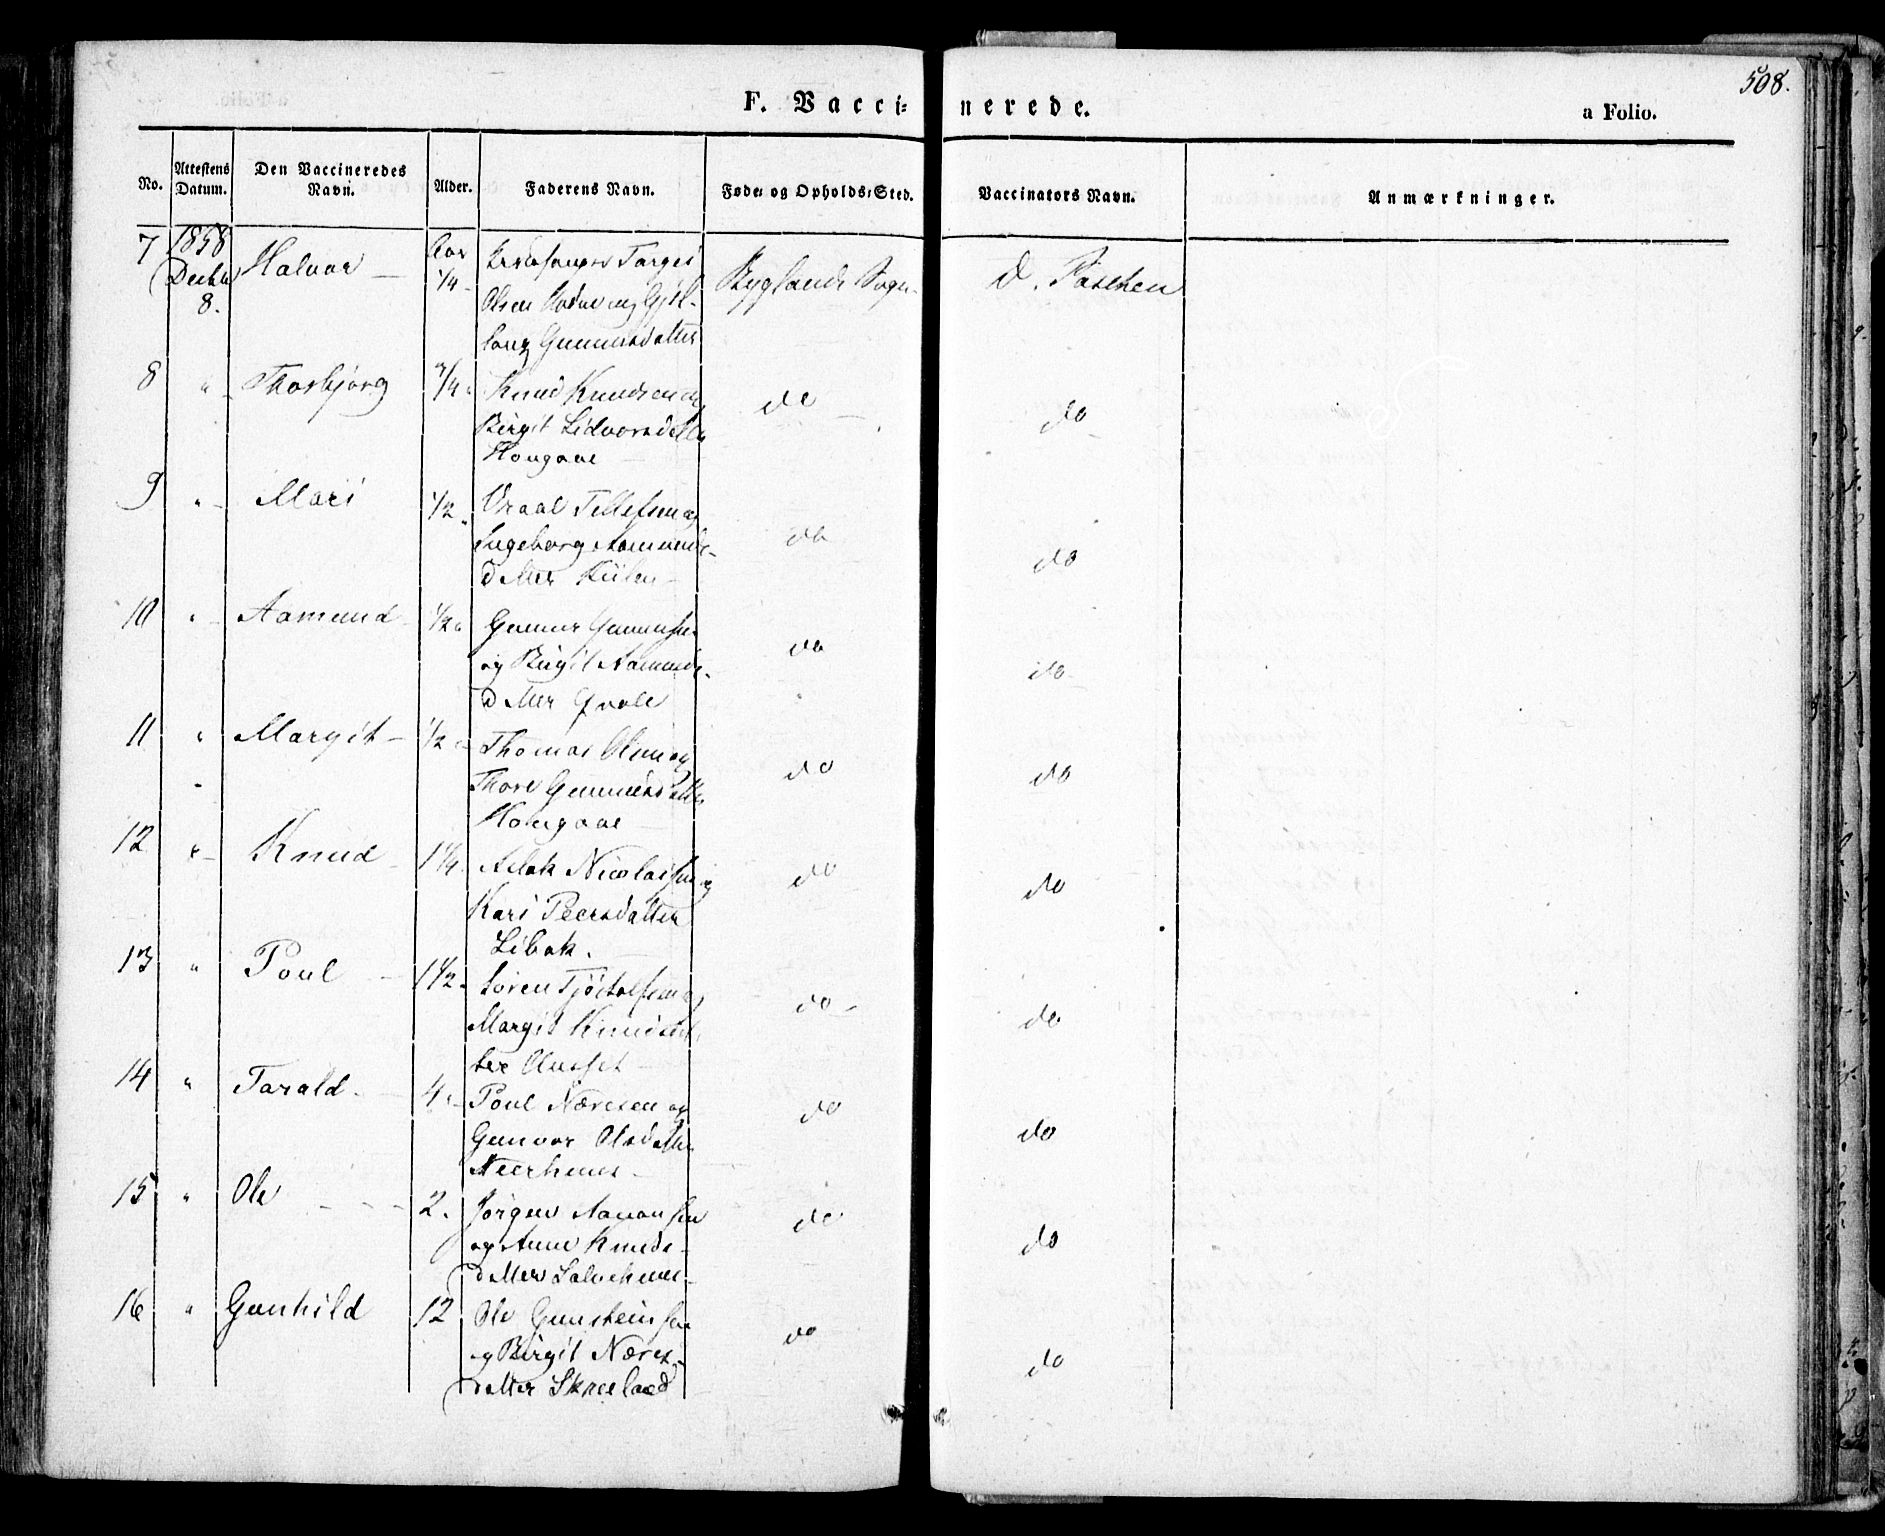 508.
F. Vacci=nerede.
a Folio.
No.
Attestens Datum.
Den Vaccineredes Navn.
Alder.
Faderens Navn.
Føde= og Opholds=Sted.
Vaccinators Navn.
Anmærkninger.
7 1858 Halvor Aar Torgei
Decbr 1/4 Olsen og Byglands Sogn D. Paschen
8. Gunnersdatter
8 " Thorbjørg 3/4 Knud Knudsen og do do
Birgit Lidvorsdatter
Hougaae
9 " Mari 1/2 Vraal Tellefsen og do do
Ingeborg Aamunds-
datter
10 " Aamund 1/2 Gunner Gunnersen do do
og Birgit Aamunds-
datter Qvale
11 " Margit 1/2 Thomas Olsen og do do
Thore Gunnersdatter
Hougaae
12 " Knud 1 1/4 Aslak Nicolaisen og do do
Kari Peersdatter
Libak.
13 " Poul 1 1/2 Søren Tjøstolfsen og do do
Margit Knudsdat-
ter
14 " Tarald 4 Poul Næresen og do do
Gunvor Olsdatter
Neerhuus
15 " Ole 2. Jørgen Aanonsen do do
og Anne Knuds-
datter
16 " Gunhild 12 Ole Gunsteinsen do do
og Birgit Næres-
datter